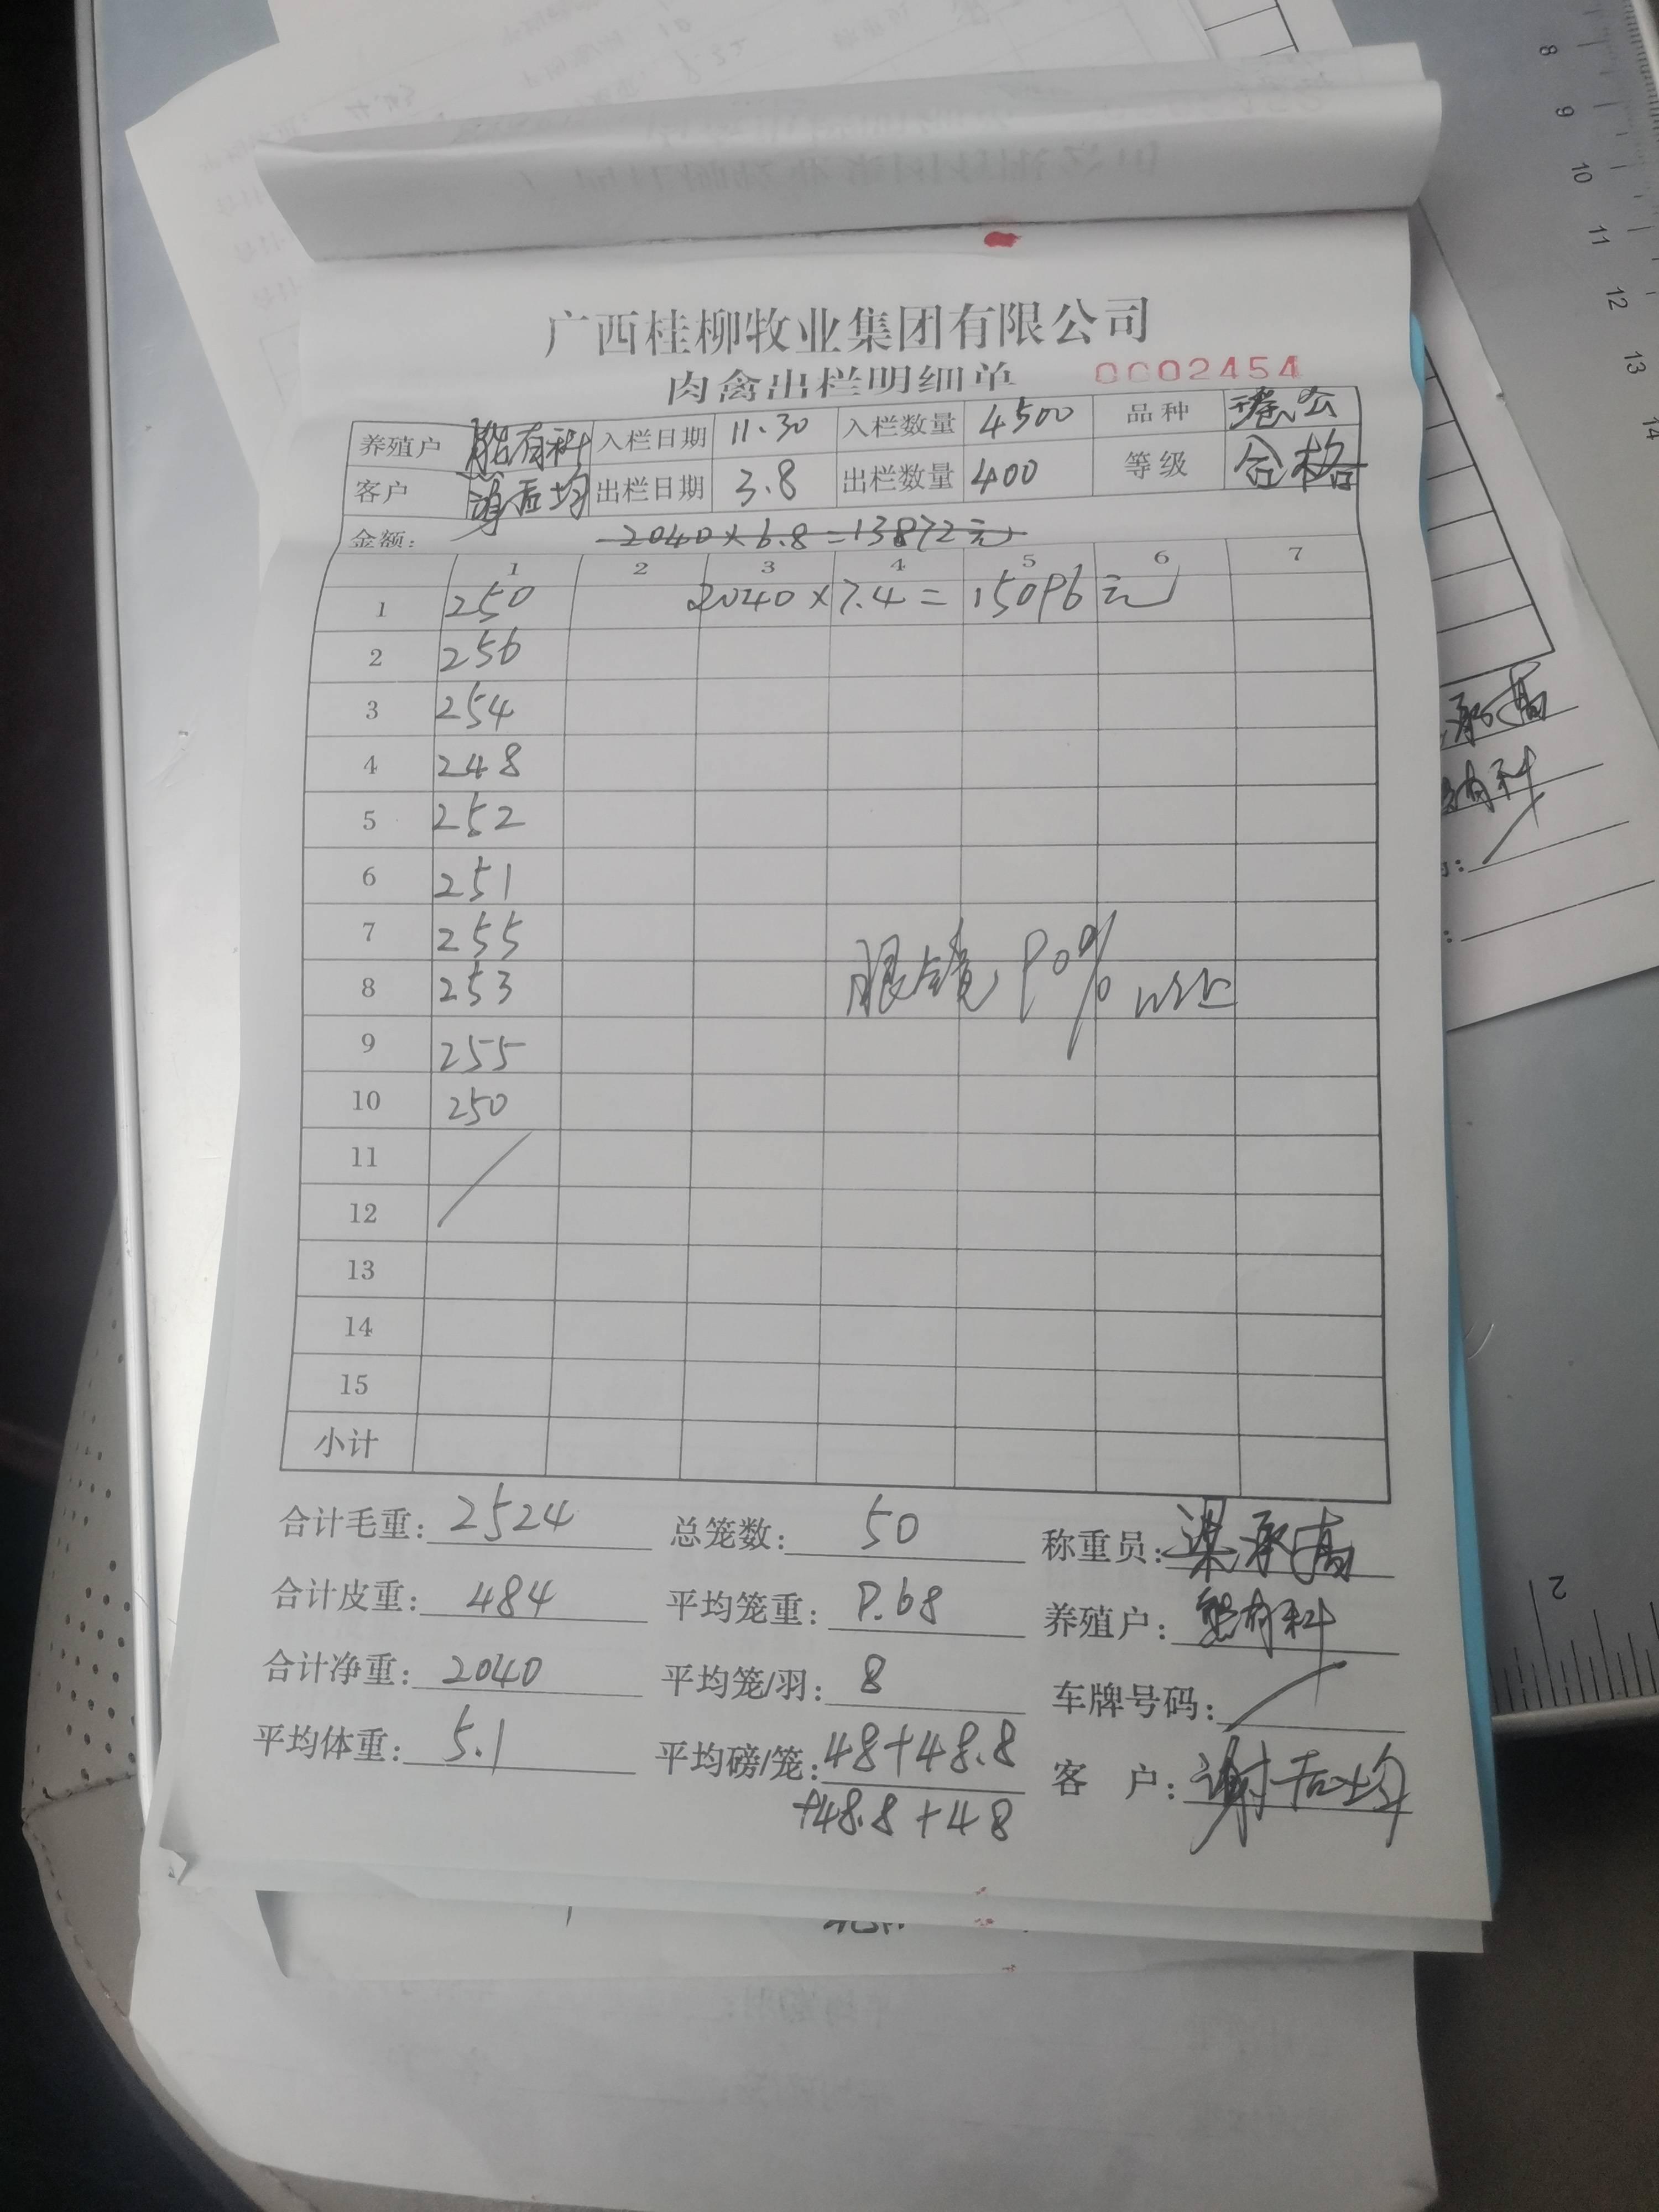 广西桂柳牧业集团有限公司
肉禽出栏明细单 0002454
养殖户 有科 入栏日期 11.30 入栏数量 4500 品种 公
客户 均 出栏日期 3.8 出栏数量 400 等级 合格
金额: 2040×6.8=13872元
1 2 3 4 5 6 7
1 250 2040×7.4=15096元
2 256
3 254
4 248
5 252
6 251
7 255
8 253 眼镜90%以上
9 255
10 250
11
12
13
14
15
小计
合计毛重: 2524 总笼数: 50 称重员: 梁承高
合计皮重: 484 平均笼重: 9.68 养殖户: 有科
合计净重: 2040 平均笼/羽: 8 车牌号码:
平均体重: 5.1 平均磅/笼: 48+48.8 客 户: 谢 均
+48.8+48
8
9
10
11
12
13
14
2